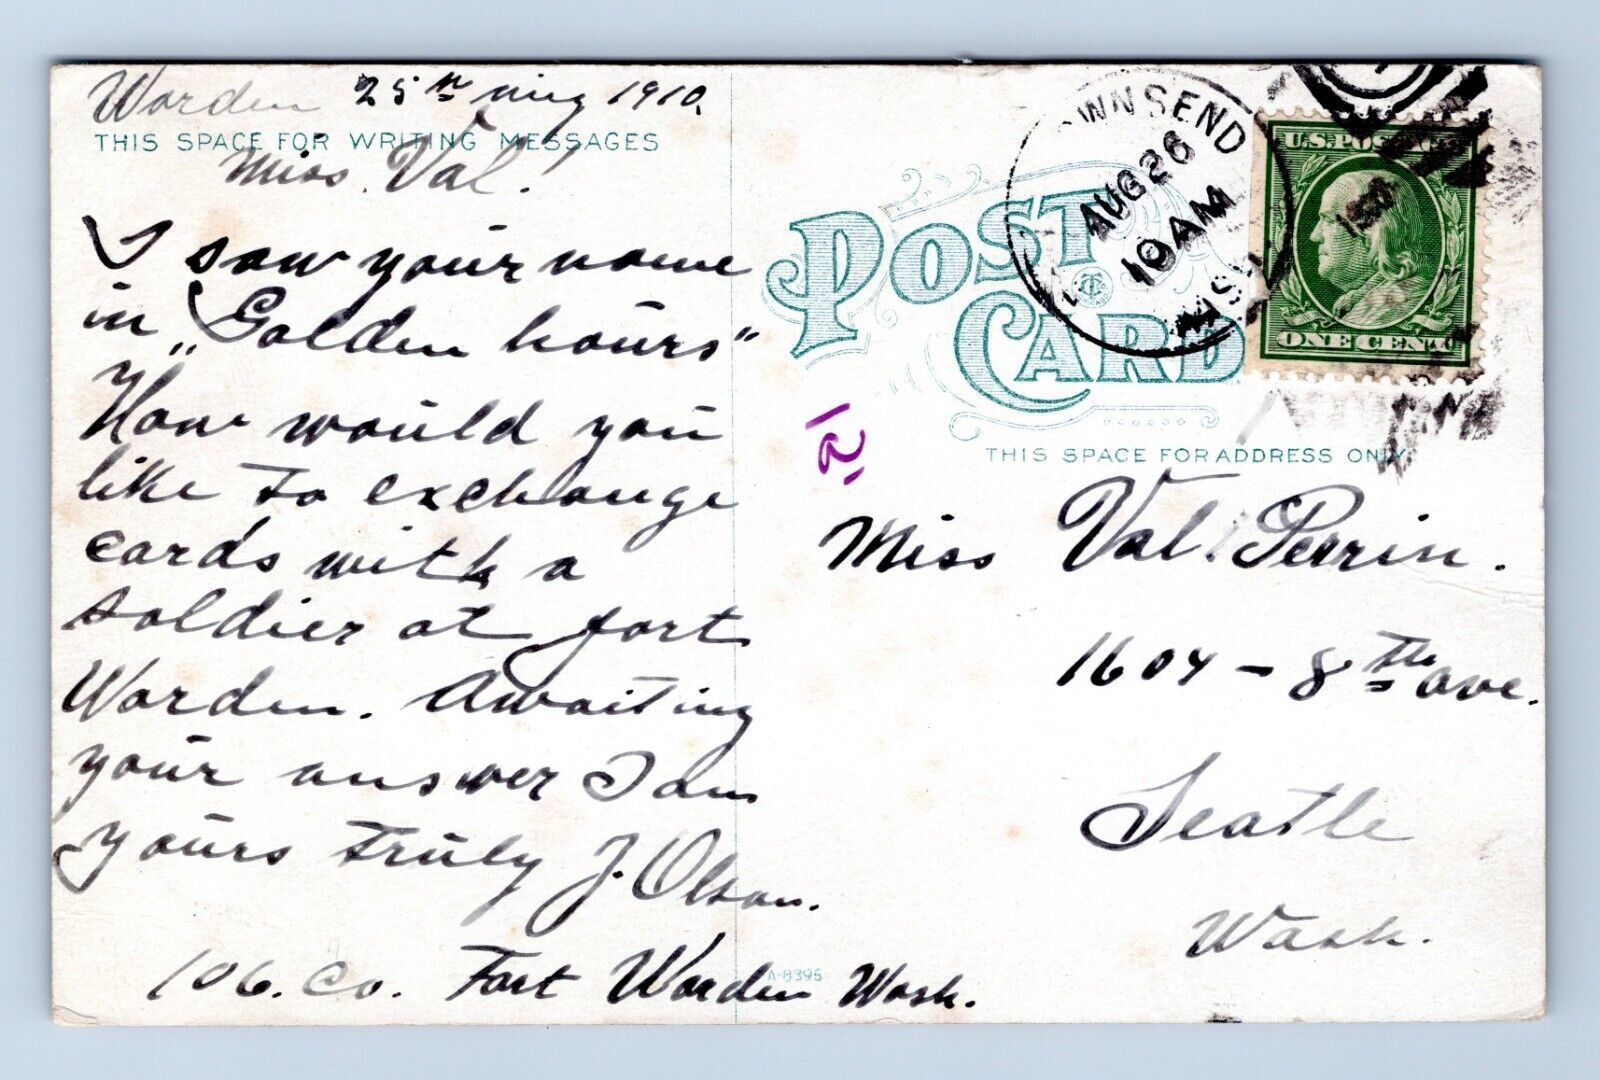 Worden 25th Aug 1910.
THIS SPACE FOR WRITING MESSAGES
Miss. Val!
I saw your name
in „Golden hours"
How would you
like to exchange
cards with a
soldier at fort
Worden. Awaiting
your answer I am
yours truly J. Olson.
106. Co. Fort Worden Wash.
A-8395
TOWNSEND
AUG 26
10 AM
WASH
U.S. POSTAGE
ONE CENT
POST
CARD
THIS SPACE FOR ADDRESS ONLY
Miss Val. Perrin.
1604 - 8th ave.
Seatle
Wash.